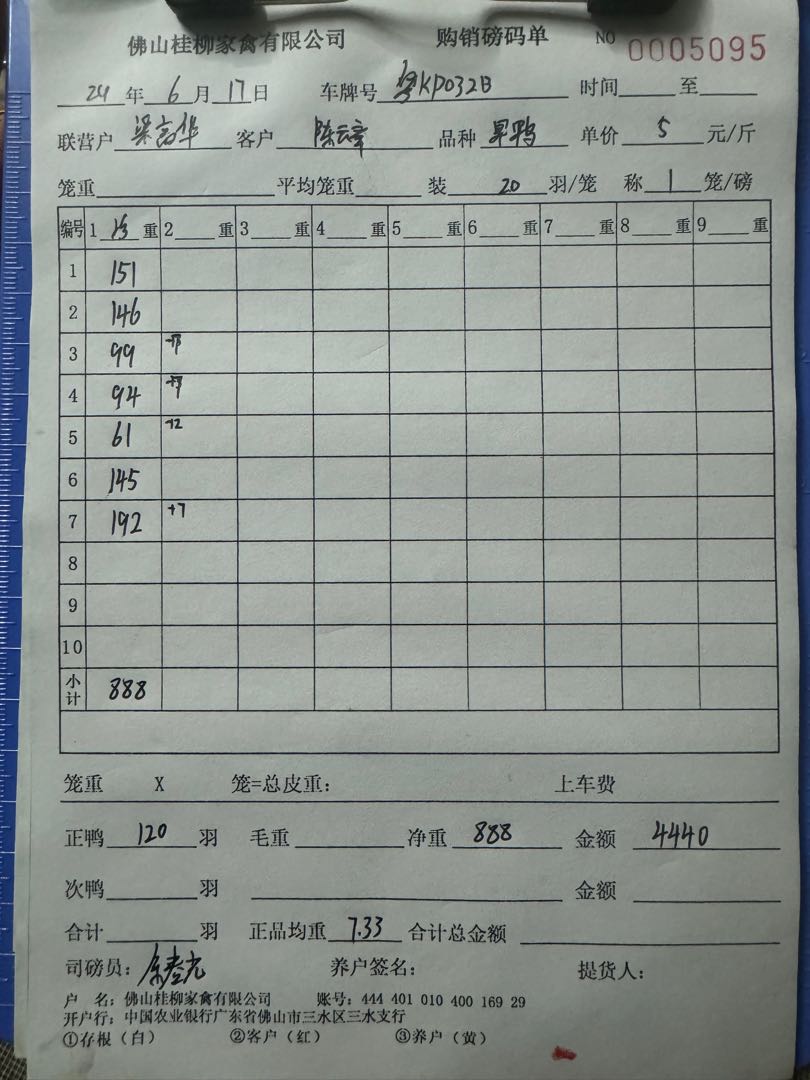 佛山桂柳家禽有限公司 购销磅码单 NO 0005095
24年6月17日 车牌号 粤KP032B 时间 至
联营户 客户 品种 单价 5 元/斤
笼重 平均笼重 装 20 羽/笼 称 1 笼/磅
编号 1 重 2 重 3 重 4 重 5 重 6 重 7 重 8 重 9 重
1 151
2 146
3 99
4 94
5 61 +12
6 145
7 192 +7
8
9
10
小计 888
笼重 X 笼=总皮重: 上车费
正鸭 120 羽 毛重 净重 888 金额 4440
次鸭 羽 金额
合计 羽 正品均重 7.33 合计总金额
司磅员: 养户签名: 提货人:
户 名: 佛山桂柳家禽有限公司 账号: 444 401 010 400 169 29
开户行: 中国农业银行广东省佛山市三水区三水支行
①存根(白) ②客户(红) ③养户(黄)